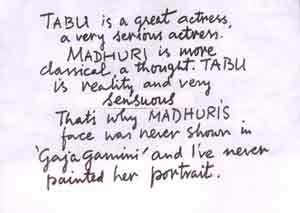 TABU is a great actress,
a very serious actress.
MADHURI is more
classical, a thought. TABU
is reality and very
sensuous
That's why MADHURI'S
face was never shown in
'Gaja Gamini' and I've never
painted her portrait.